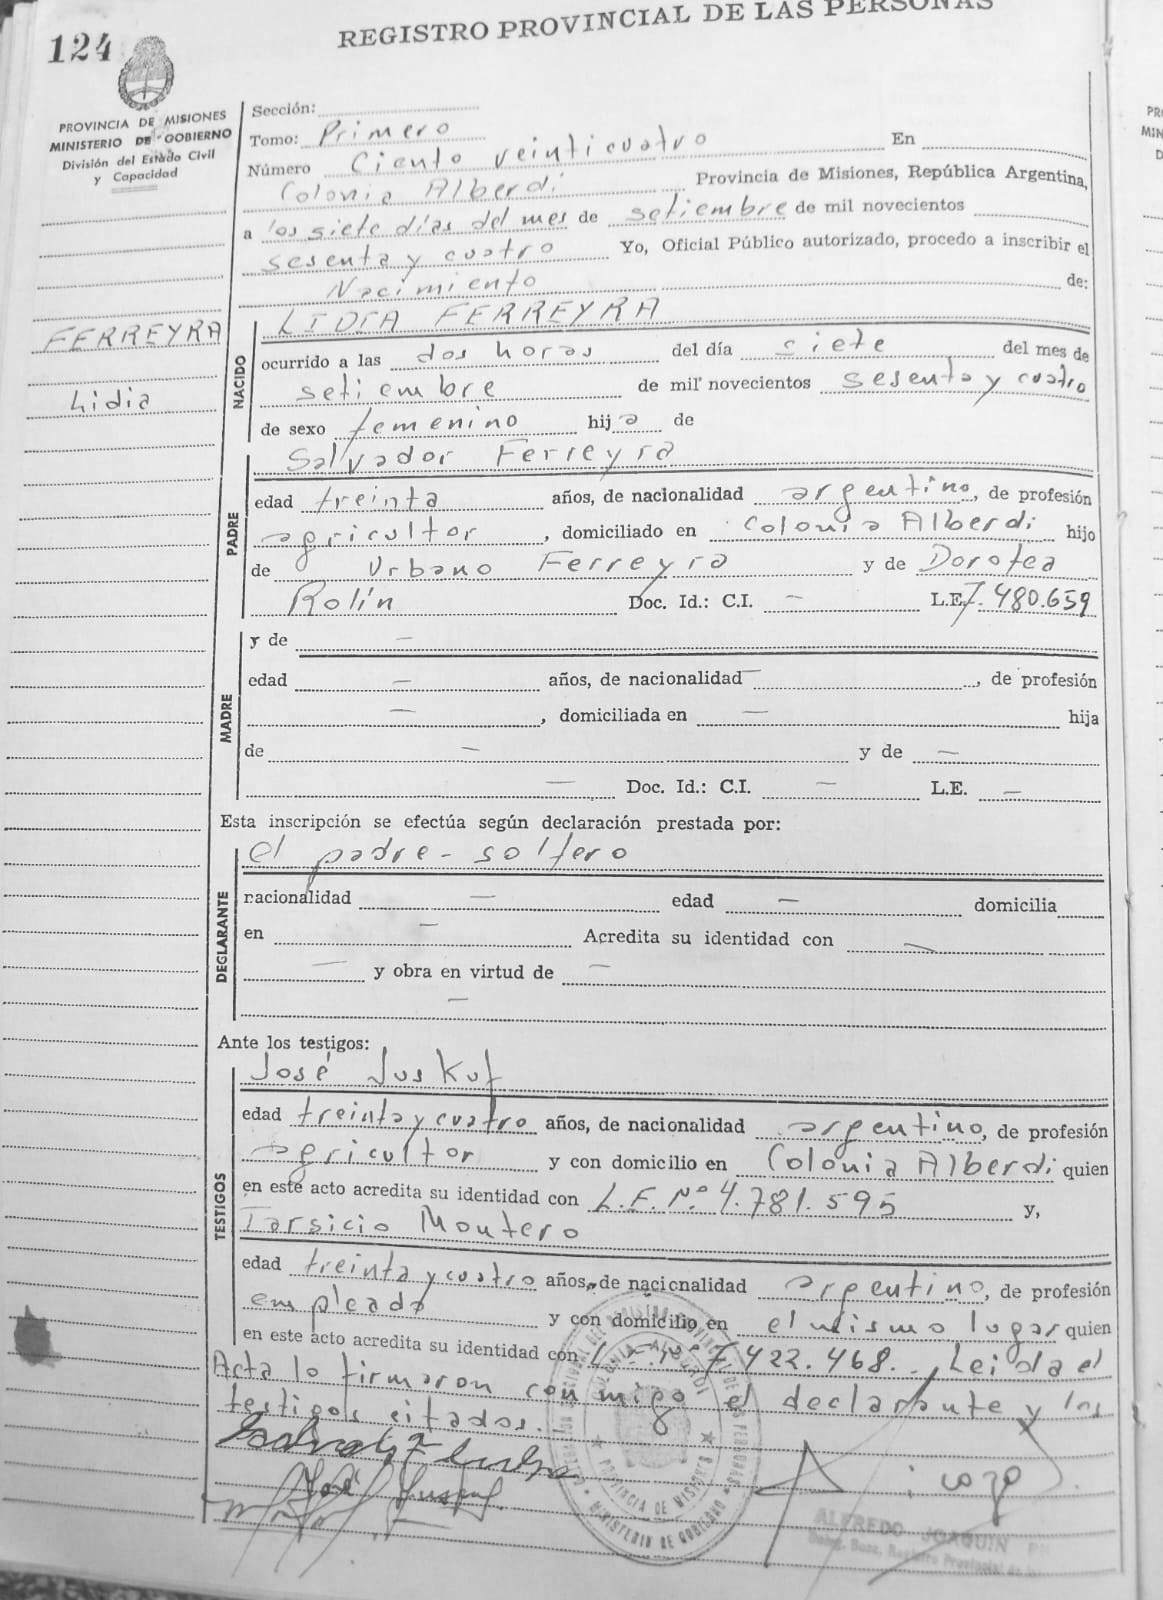 REGISTRO PROVINCIAL DE LAS PERSONAS
124
PROVINCIA DE MISIONES
MINISTERIO DE GOBIERNO
División del Estado Civil
y Capacidad
FERREYRA
Lidia
Sección:
Tomo: Primero
Número Ciento veinticuatro En
Colonia Alberdi Provincia de Misiones, República Argentina,
a los siete días del mes de setiembre de mil novecientos
sesenta y cuatro Yo, Oficial Público autorizado, procedo a inscribir el
Nacimiento de:
NACIDO
LIDIA FERREYRA
ocurrido a las dos horas del día siete del mes de
setiembre de mil novecientos sesenta y cuatro
de sexo femenino hija de
PADRE
Salvador Ferreyra
edad treinta años, de nacionalidad argentino, de profesión
agricultor, domiciliado en Colonia Alberdi hijo
de Urbano Ferreyra y de Dorotea
Rolín Doc. Id.: C.I. — L.E. 7.480.659
MADRE
y de —
edad — años, de nacionalidad —, de profesión
—, domiciliada en — hija
de — y de —
— Doc. Id.: C.I. — L.E. —
Esta inscripción se efectúa según declaración prestada por:
DECLARANTE
el padre - soltero
nacionalidad — edad — domicilia
en — Acredita su identidad con —
— y obra en virtud de —
—
Ante los testigos:
TESTIGOS
José Juskuf
edad treinta y cuatro años, de nacionalidad argentino, de profesión
agricultor y con domicilio en Colonia Alberdi quien
en este acto acredita su identidad con L.E. Nº 4.781.595 y,
Tarsicio Montero
edad treinta y cuatro años, de nacionalidad argentino, de profesión
empleado y con domicilio en el mismo lugar quien
en este acto acredita su identidad con L.E. Nº 7.422.468. Leida el
Acta lo firmaron conmigo el declarante y los
testigos citados.
José
PROVINCIA DE MISIONES
MINISTERIO DE GOBIERNO
ALFREDO JOAQUIN